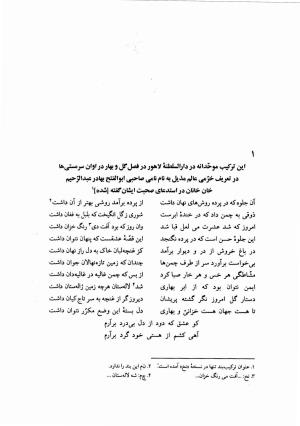 ۱
این ترکیب موحّدانه در دارالسلطنهٔ لاهور در فصل گل و بهار در اوان سرمستی‌ها
در تعریف خرّمی عالم مذیل به نام نامی صاحبی ابوالفتح بهادر عبدالرّحیم
خان خانان در استدعای صحبت ایشان گفته [شده]۱
آن جلوه که در پرده روش‌های نهان داشت از پرده برآمد روشی بهتر از آن داشت۲
ذوقی به چمن داد که در خندهٔ ابرست شوری ز گل انگیخت که بلبل به فغان داشت
امروز که شد عشرت می لعل قبا شد وان روز که بود آفت دی۳ رنگ خزان داشت
این جلوهٔ حسن است که در پرده نگنجد این قصّهٔ عشقست که پنهان نتوان داشت
در باغ خروش از در و دیوار برآمد کز غنچه‌لبان خاک به دل راز نهان داشت
می‌خواست برآورد سر از طرف چمن‌ها چندان که زمین تازه‌نهالان جوان داشت
مشّاطگی هر خس و هر خار صبا کرد از بس که چمن غالیه در غالیه‌دان داشت
ایمن نتوان بود که از ابر بهاری شد۴ لاله‌ستان هرچه زمین ژاله‌ستان داشت
دستار گل امروز نگر گشته پریشان دیروز گر از غنچه به سر تاج کیان داشت
تا هست جهان هست خزانیّ و بهاری دل بستهٔ این وضع مکرّر نتوان داشت
کو عشق که دود از دل بی‌درد برآرم
آهی کشم از هستی خود گرد برآرم
۱. عنوان ترکیب‌بند تنها در نسخهٔ «نخ» آمده است. ۲. نم این بند را ندارد.
۳. نخ: ...آفت می رنگ خزان... ۴. چم: شه لاله‌ستان...